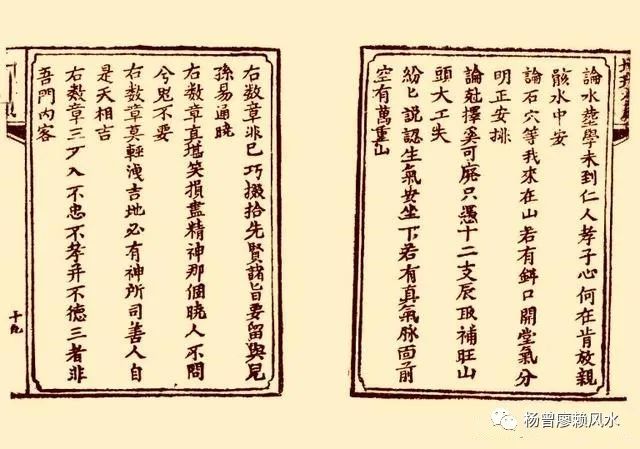 論水葬學未到仁人孝子心何在肯放親
骸水中安
論石穴等我來在山若有鋂口開堂氣分
明正安排
論尅擇奚可廃只憑十二支辰取補旺山
頭大工失
紛匕説認生氣安坐下若有真氣脉面前
空有萬重山
右数章非已巧掇拾先賢諸旨要留與兒
孫易通曉
右数章直堪笑損盡精神那個曉人不問
兮鬼不要
右数章莫輕洩吉地必有神所司善人自
是天相吉
右数章三不入不忠不孝并不德三者非
吾門內客
十九
杨曾廖赖风水